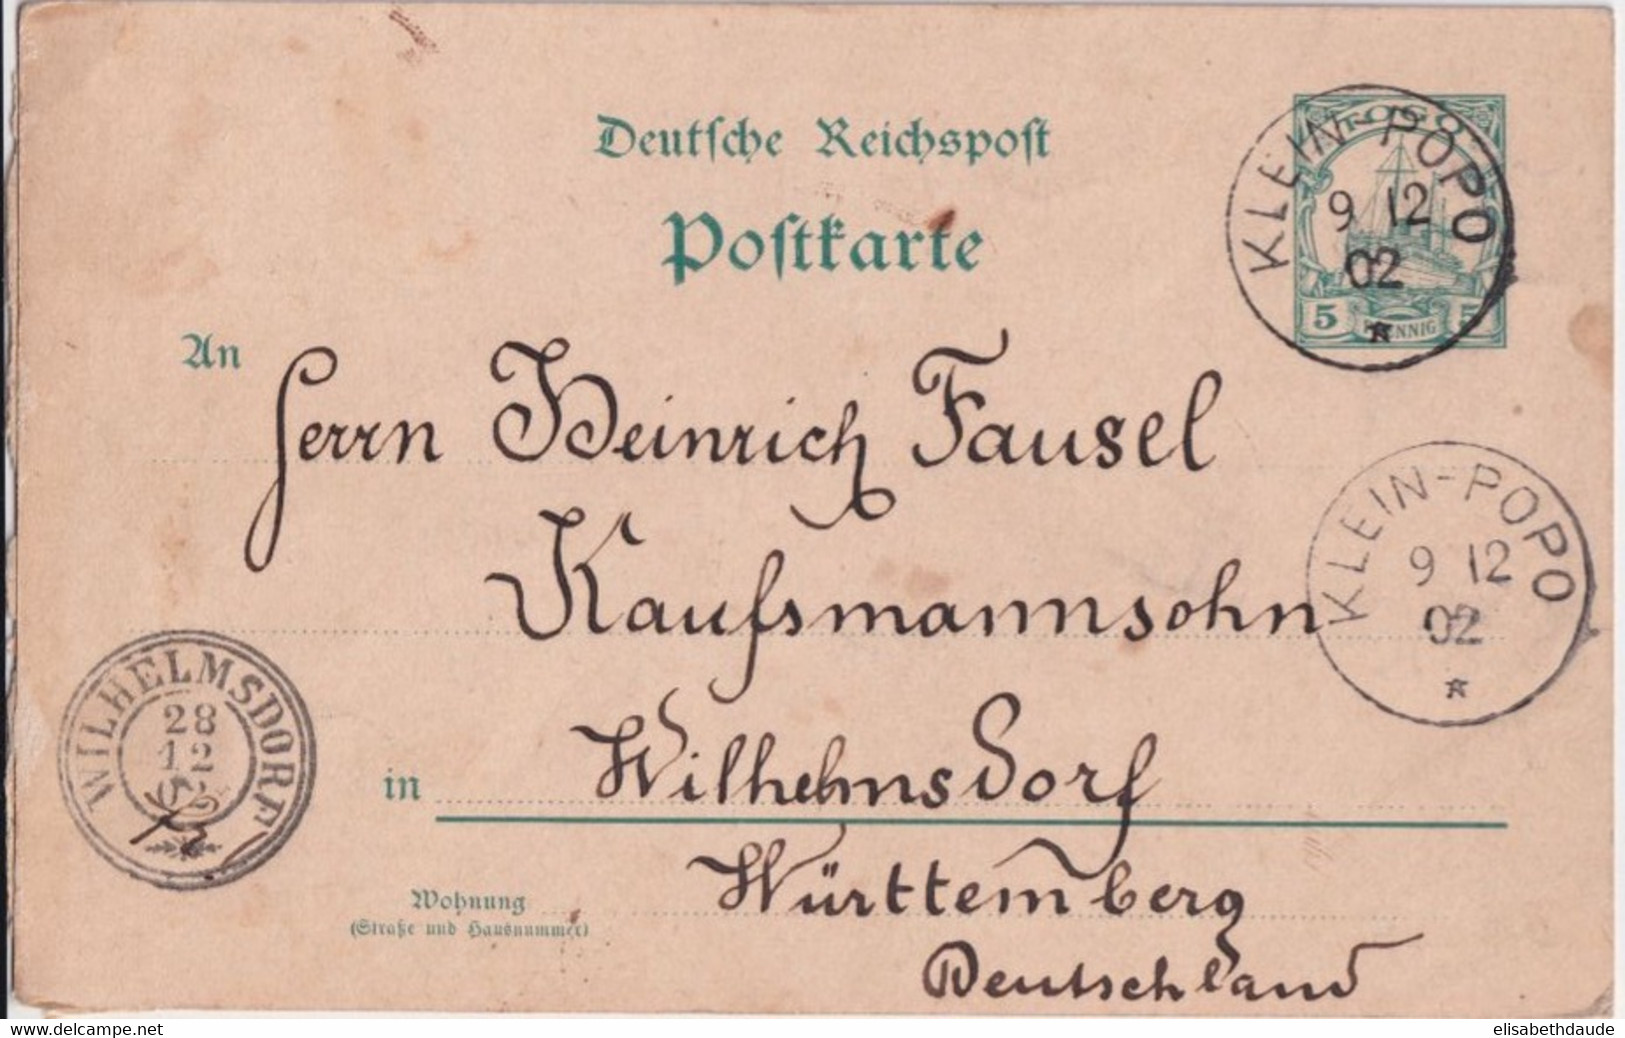 Deutſche Reichspoſt
Poſtkarte
TOGO
5 PFENNIG 5
KLEIN-POPO
9 12
02
An Herrn Heinrich Fausel
Kaufsmannsohn
KLEIN-POPO
9 12
02
WILHELMSDORF
28
12
02
in Wilhelmsdorf
Württemberg
Wohnung
(Straße und Hausnummer)
Deutschland
delcampe.net
Wed 28-12-2022 15:25:03 (UTC)
elisabethdaude